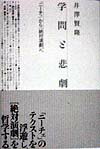 井澤賢隆
学問と悲劇
「ニーチェ」から「絶対演劇」へ
「ニーチェ」の
テクストを
浮遊し
「絶対演劇」を
哲学する